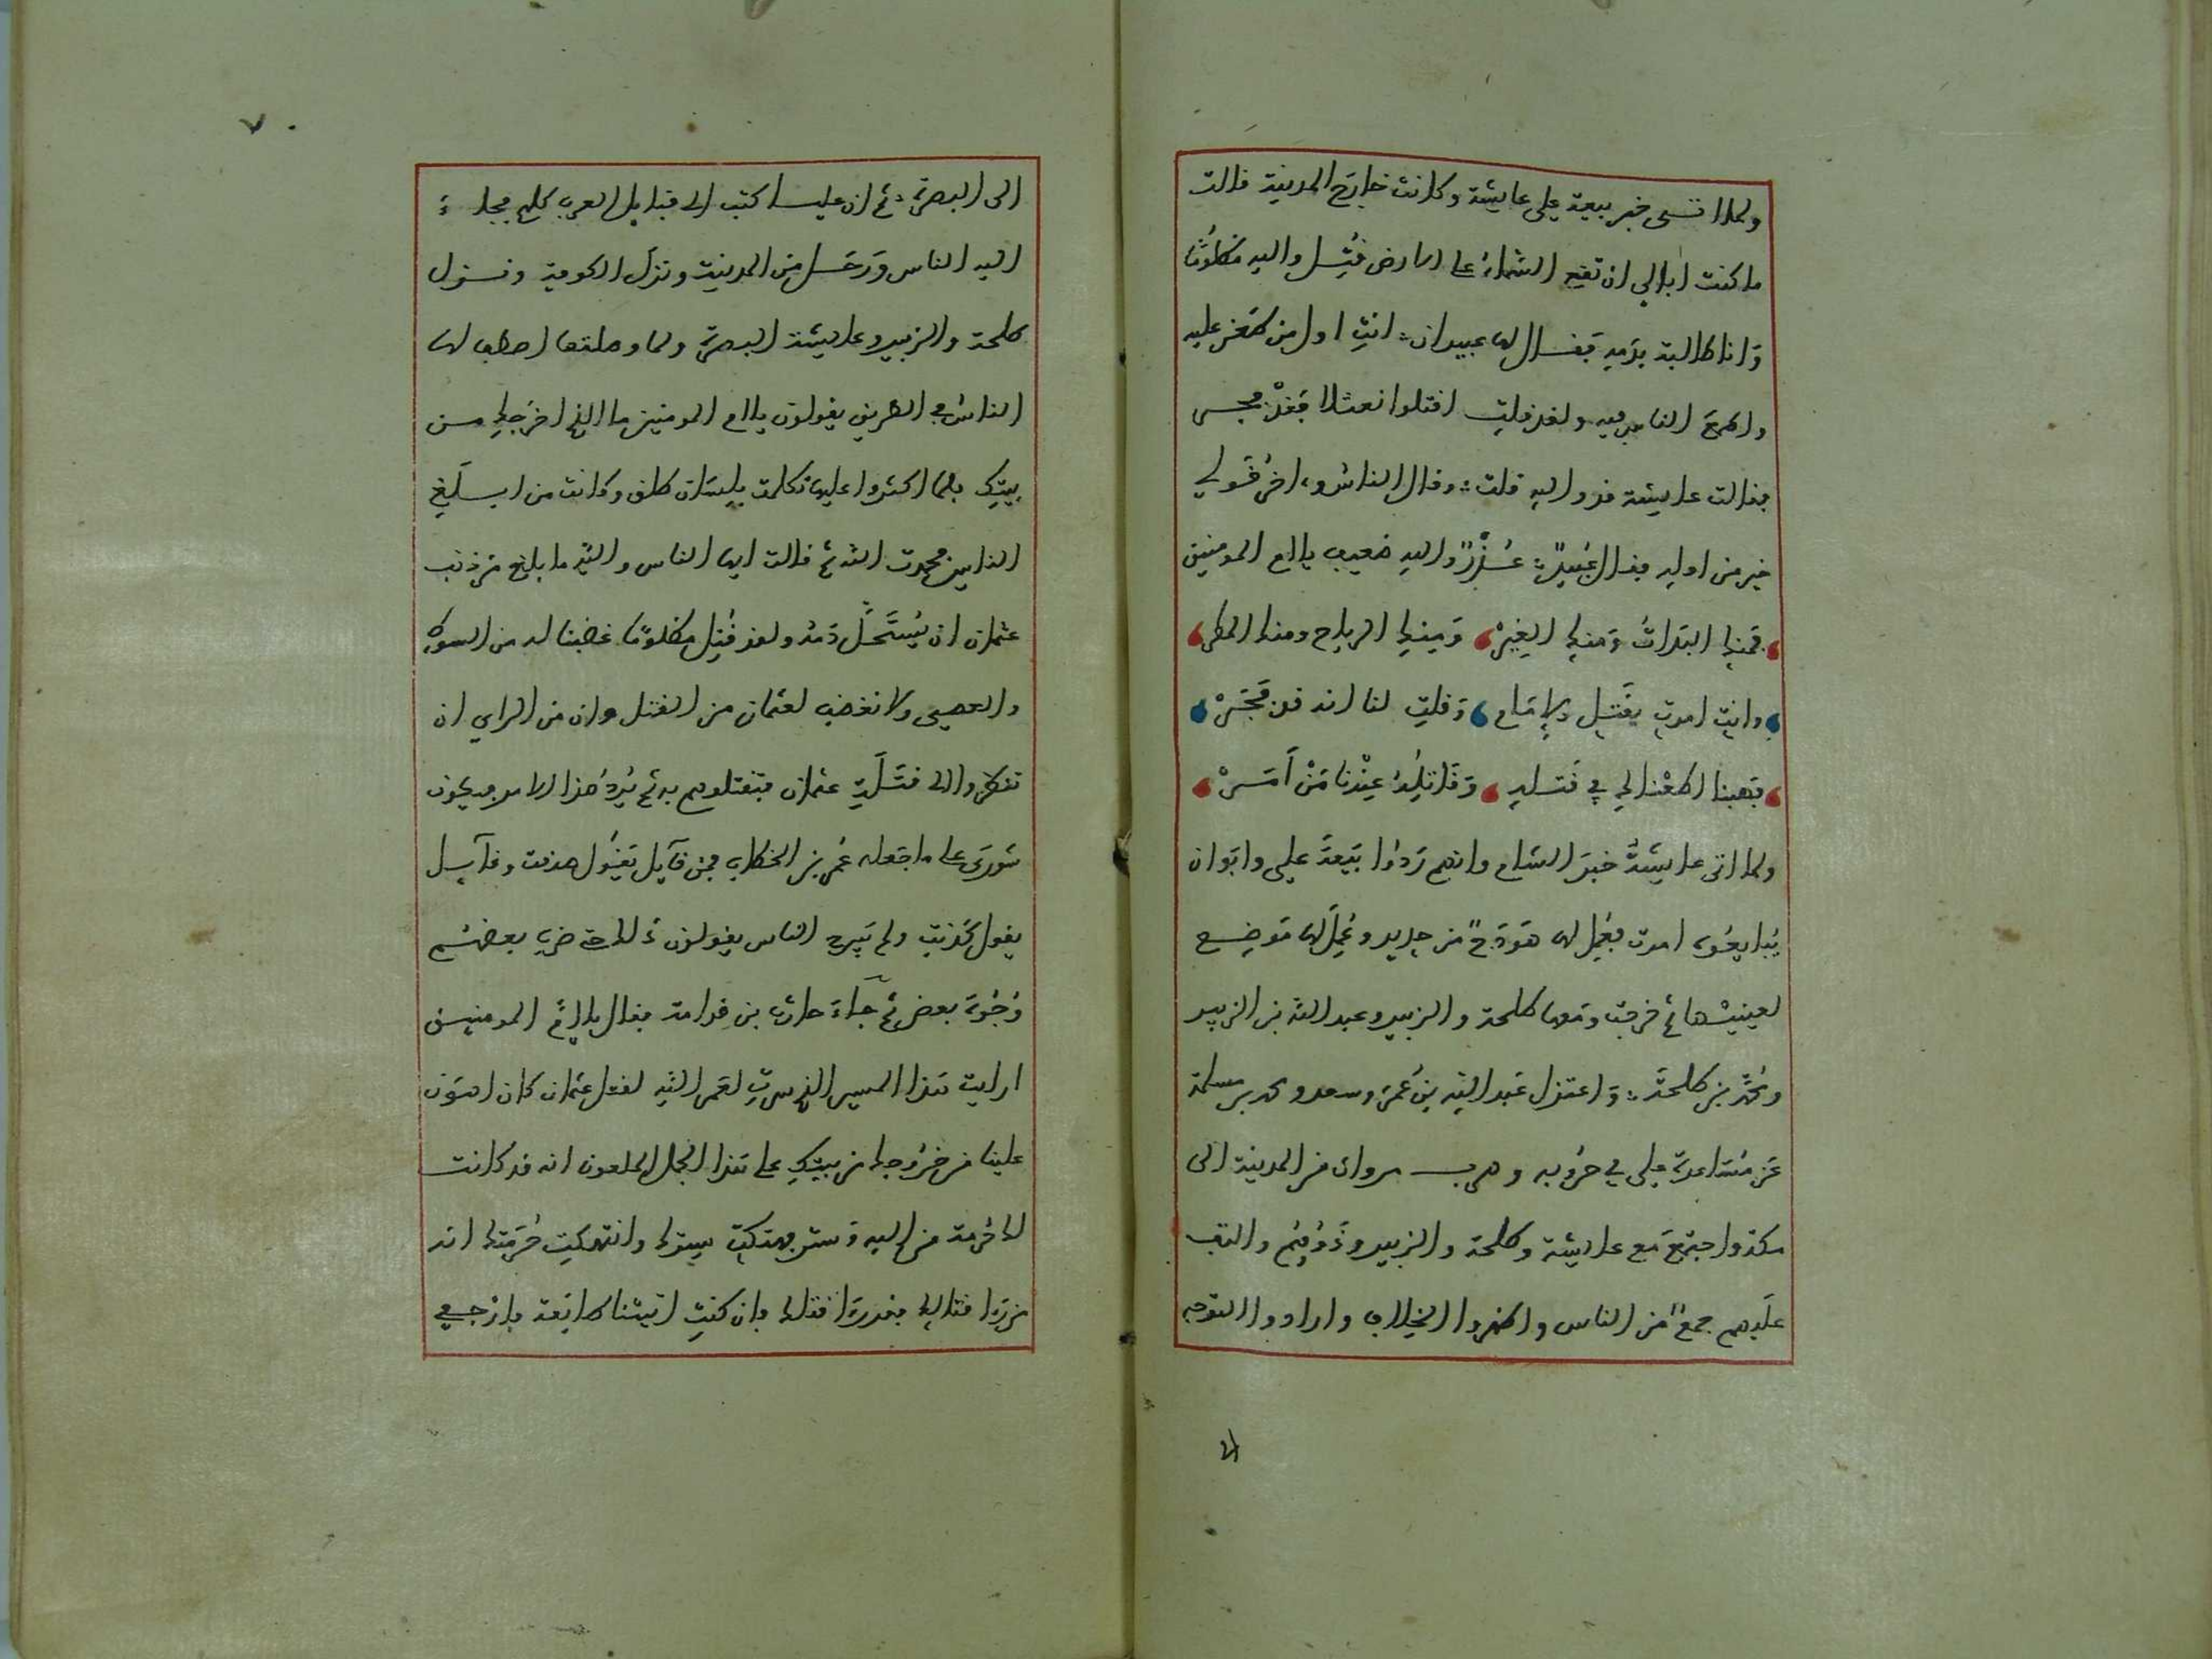 ولما اتى خبر بيعة علي عايشة وكانت خارج المدينة فالت
ما كنت ابالي ان تقع السماء على الارض فتل والله مظلوما
وانا طالبة بدمه فقال لها عبيد ان انت اول من طعن عليه
واطمع الناس فيه ولقد قلت اقتلوا نعثلا فقد فجر
فقالت عايشة قد والله قلت وقال الناس واخر قولي
خير من اوله فقال عبيد عذر والله ضعيف يا ام المومنين
فمنك البداة ومنك الغير ومنك الرياح ومنك المطر
وانت امرت بقتل الامام وقلت لنا انه قد فجر
فهبنا اطعناك في قتله وقاتله عندنا من امر
ولما اتى عايشة خبر الشام وانهم ردوا بيعة علي وابوا ان
يبايعوه امرت فعمل لها هودج من حديد وعمل لها موضع
لعينيها ثم خرجت ومعها طلحة والزبير وعبد الله بن الزبير
ومحمد بن طلحة واعتزل عبد الله بن عمر وسعد ومحمد بن مسلمة
عن مساعدة علي في حروبه وهرب مروان من المدينة الى
مكة واجتمع مع عايشة وطلحة والزبير وذويهم والتف
عليهم جمع من الناس واظهروا الخلاف وارادوا التوجه
الى
٧٠
الى البصرة ثم ان عليا كتب الى قبايل العرب كلهم فجاء
اليه الناس ورحل من المدينة ونزل الكوفة ونزل
طلحة والزبير وعايشة البصرة ولما وصلتها اصطف لها
الناس في الطريق يقولون يا ام المومنين ما الذي اخرجك من
بيتك فلما اكثروا عليها تكلمت بلسان طلق وكانت من ابلغ
الناس فحمدت الله ثم قالت ايها الناس والله ما بلغ من ذنب
عثمان ان يستحل دمه ولقد قتل مظلوما غضبنا له من السوط
والعصى ولا نغضب لعثمان من القتل وان من الراي ان
تنظروا الى قتلة عثمان فتقتلوهم به ثم يرد هذا الامر فيكون
شورى على ما جعله عمر بن الخطاب فمن قايل يقول صدقت وقايل
يقول كذبت ولم يبرح الناس يقولون ذلك حتى ضرب بعضهم
وجوه بعض ثم جاء حارثة بن قدامة فقال يا ام المومنين
ارايت هذا المسير الذي سرت لعمر الله لقتل عثمان كان اهون
علينا من خروجك من بيتك على هذا الجمل الملعون انه قد كانت
لك حرمة من الله وستر فهتكت سترك وانتهكت حرمتك انه
من راى قتالك فقد راى قتلك فان كنت اتيتنا طايعة فارجعي